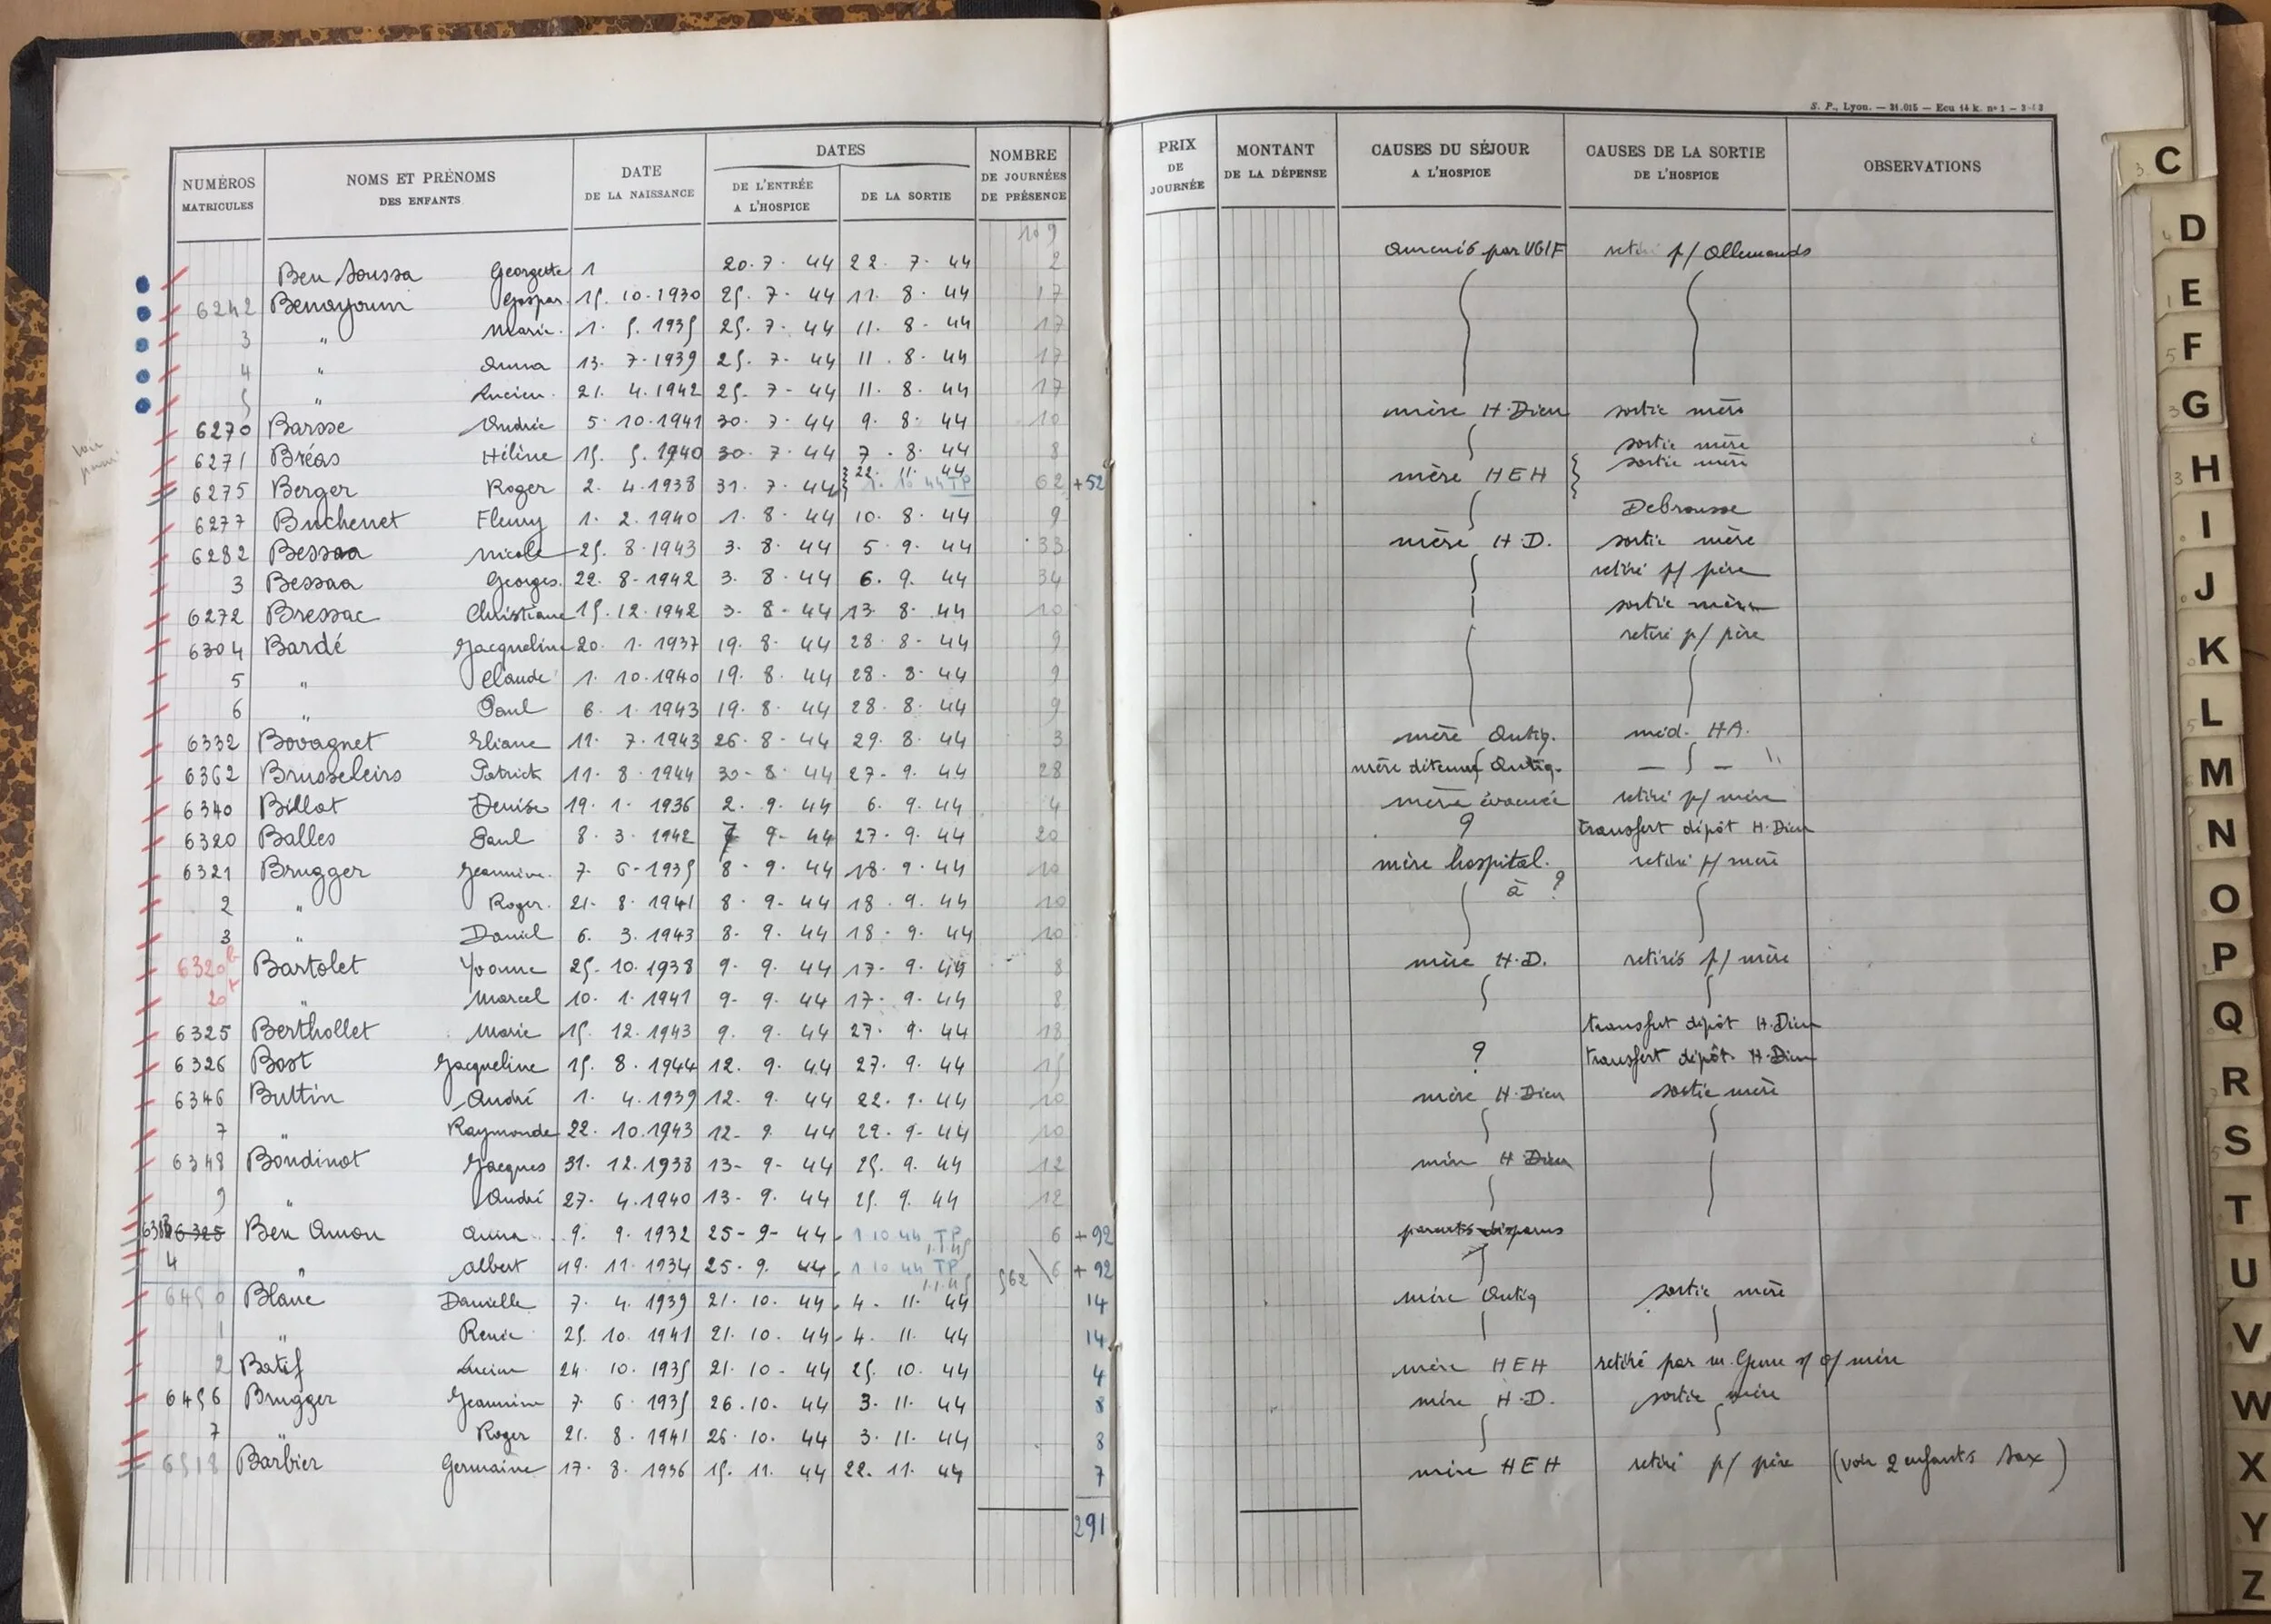 S. P., Lyon. — 31.015 — Ecu 14 k. n° 1 — 3-43
NUMÉROS MATRICULES
NOMS ET PRÉNOMS DES ENFANTS
DATE DE LA NAISSANCE
DATES
DE L'ENTRÉE A L'HOSPICE
DE LA SORTIE
NOMBRE DE JOURNÉES DE PRÉSENCE
PRIX DE JOURNÉE
MONTANT DE LA DÉPENSE
CAUSES DU SÉJOUR A L'HOSPICE
CAUSES DE LA SORTIE DE L'HOSPICE
OBSERVATIONS
109
Ben Soussa Georgette 1 20. 7. 44 22. 7. 44 2 Amenés par UGIF retiré p/ Allemands
6242 Benayoum Gaspar. 15. 10. 1930 25. 7. 44 11. 8. 44 17
3 " Marie. 1. 5. 1935 25. 7. 44 11. 8. 44 17
4 " Anna 13. 7. 1939 25. 7. 44 11. 8. 44 17
5 " Lucien. 21. 4. 1942 25. 7. 44 11. 8. 44 17
6270 Barsse Andrée 5. 10. 1941 30. 7. 44 9. 8. 44 10 mère H. Dieu sortie mère
6271 Bréas Hélène 15. 5. 1940 30. 7. 44 7. 8. 44 8 sortie mère
6275 Berger Roger 2. 4. 1938 31. 7. 44 22. 11. 44 1. 10 44 TP 62 +52 mère HEH sortie mère
6277 Buchenet Fleury 1. 2. 1940 1. 8. 44 10. 8. 44 9 Debrousse
6282 Bessaa Nicole 25. 8. 1943 3. 8. 44 5. 9. 44 33 mère H.D. sortie mère
3 Bessaa Georges. 22. 8. 1942 3. 8. 44 6. 9. 44 34 retiré p/ père
6272 Bressac Christiane 15. 12. 1942 3. 8. 44 13. 8. 44 10 sortie mère
6304 Bardé Jacqueline 20. 1. 1937 19. 8. 44 28. 8. 44 9 retiré p/ père
5 " Claude 1. 10. 1940 19. 8. 44 28. 8. 44 9
6 " Paul 6. 1. 1943 19. 8. 44 28. 8. 44 9
6332 Bovagnet Eliane 11. 7. 1943 26. 8. 44 29. 8. 44 3 mère Antiq. méd. HA.
6362 Brusseleirs Patrick 11. 8. 1944 30. 8. 44 27. 9. 44 28 mère détenue Antiq. — " —
6340 Billot Denise 19. 1. 1936 2. 9. 44 6. 9. 44 4 mère évacuée retiré p/ mère
6320 Balles Paul 8. 3. 1942 7 9. 44 27. 9. 44 20 ? transfert dépôt H. Dieu
6321 Brugger Jeannine. 7. 6. 1935 8. 9. 44 18. 9. 44 10 mère hospital. à ? retiré p/ mère
2 " Roger. 21. 8. 1941 8. 9. 44 18. 9. 44 10
3 " Daniel 6. 3. 1943 8. 9. 44 18. 9. 44 10
6320b Bartolet Yvonne 25. 10. 1938 9. 9. 44 17. 9. 44 8 mère H.D. retirés p/ mère
20t " Marcel 10. 1. 1941 9. 9. 44 17. 9. 44 8
6325 Berthollet Marie 15. 12. 1943 9. 9. 44 27. 9. 44 18 transfert dépôt H. Dieu
6326 Bost Jacqueline 15. 8. 1944 12. 9. 44 27. 9. 44 15 ? transfert dépôt H. Dieu
6346 Buttin André 1. 4. 1939 12. 9. 44 22. 9. 44 10 mère H. Dieu sortie mère
7 " Raymonde 22. 10. 1943 12. 9. 44 22. 9. 44 10
6348 Boudinot Jacques 31. 12. 1938 13. 9. 44 25. 9. 44 12 mère H Dieu
9 " André 27. 4. 1940 13. 9. 44 25. 9. 44 12
6325 Ben Amon Anna 9. 9. 1932 25. 9. 44 1 10 44 TP 1.1.45 6 +92 parents disparus
4 " Albert 19. 11. 1934 25. 9. 44 1 10 44 TP 1.1.45 562 6 +92
6450 Blanc Danielle 7. 4. 1939 21. 10. 44 4. 11. 44 14 mère Antiq sortie mère
1 " Renée 25. 10. 1941 21. 10. 44 4. 11. 44 14
2 Batif Lucien 24. 10. 1935 21. 10. 44 25. 10. 44 4 mère HEH retiré par
6456 Brugger Jeannine 7. 6. 1935 26. 10. 44 3. 11. 44 8 mère H.D. sortie mère
7 " Roger 21. 8. 1941 26. 10. 44 3. 11. 44 8
6518 Barbier Germaine 17. 8. 1936 15. 11. 44 22. 11. 44 7 mère HEH retiré p/ père (voir 2 enfants Sax)
291
C
D
E
F
G
H
I
J
K
L
M
N
O
P
Q
R
S
T
U
V
W
X
Y
Z